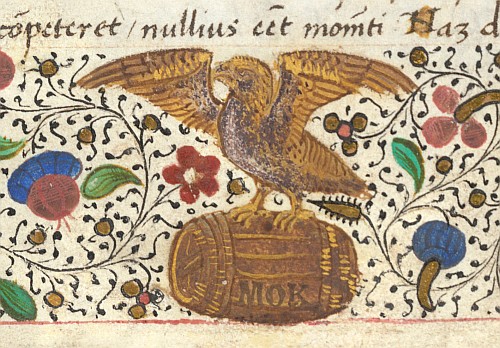 cōpeteret / nullius eēt mom̄ti Naʒ d
MOR